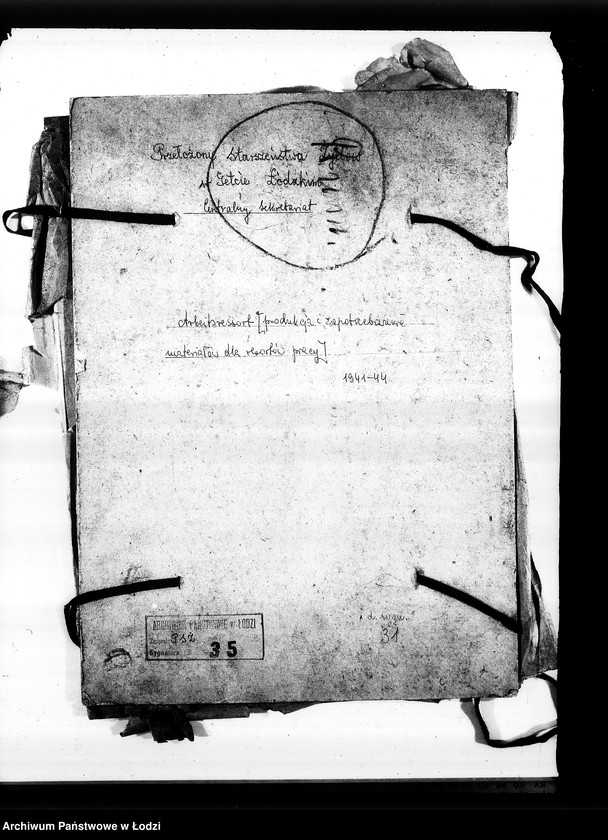 Przełożony Starszeństwa Żydów
w Getcie Łódzkim
Centralny Sekretariat
Arbeitsressort [produkcja i zapotrzebowanie
materiałów dla resortów pracy]
1941-44
ARCHIWUM PAŃSTWOWE w ŁODZI
Zespół PSŻ
Sygnatura 35
31
Archiwum Państwowe w Łodzi